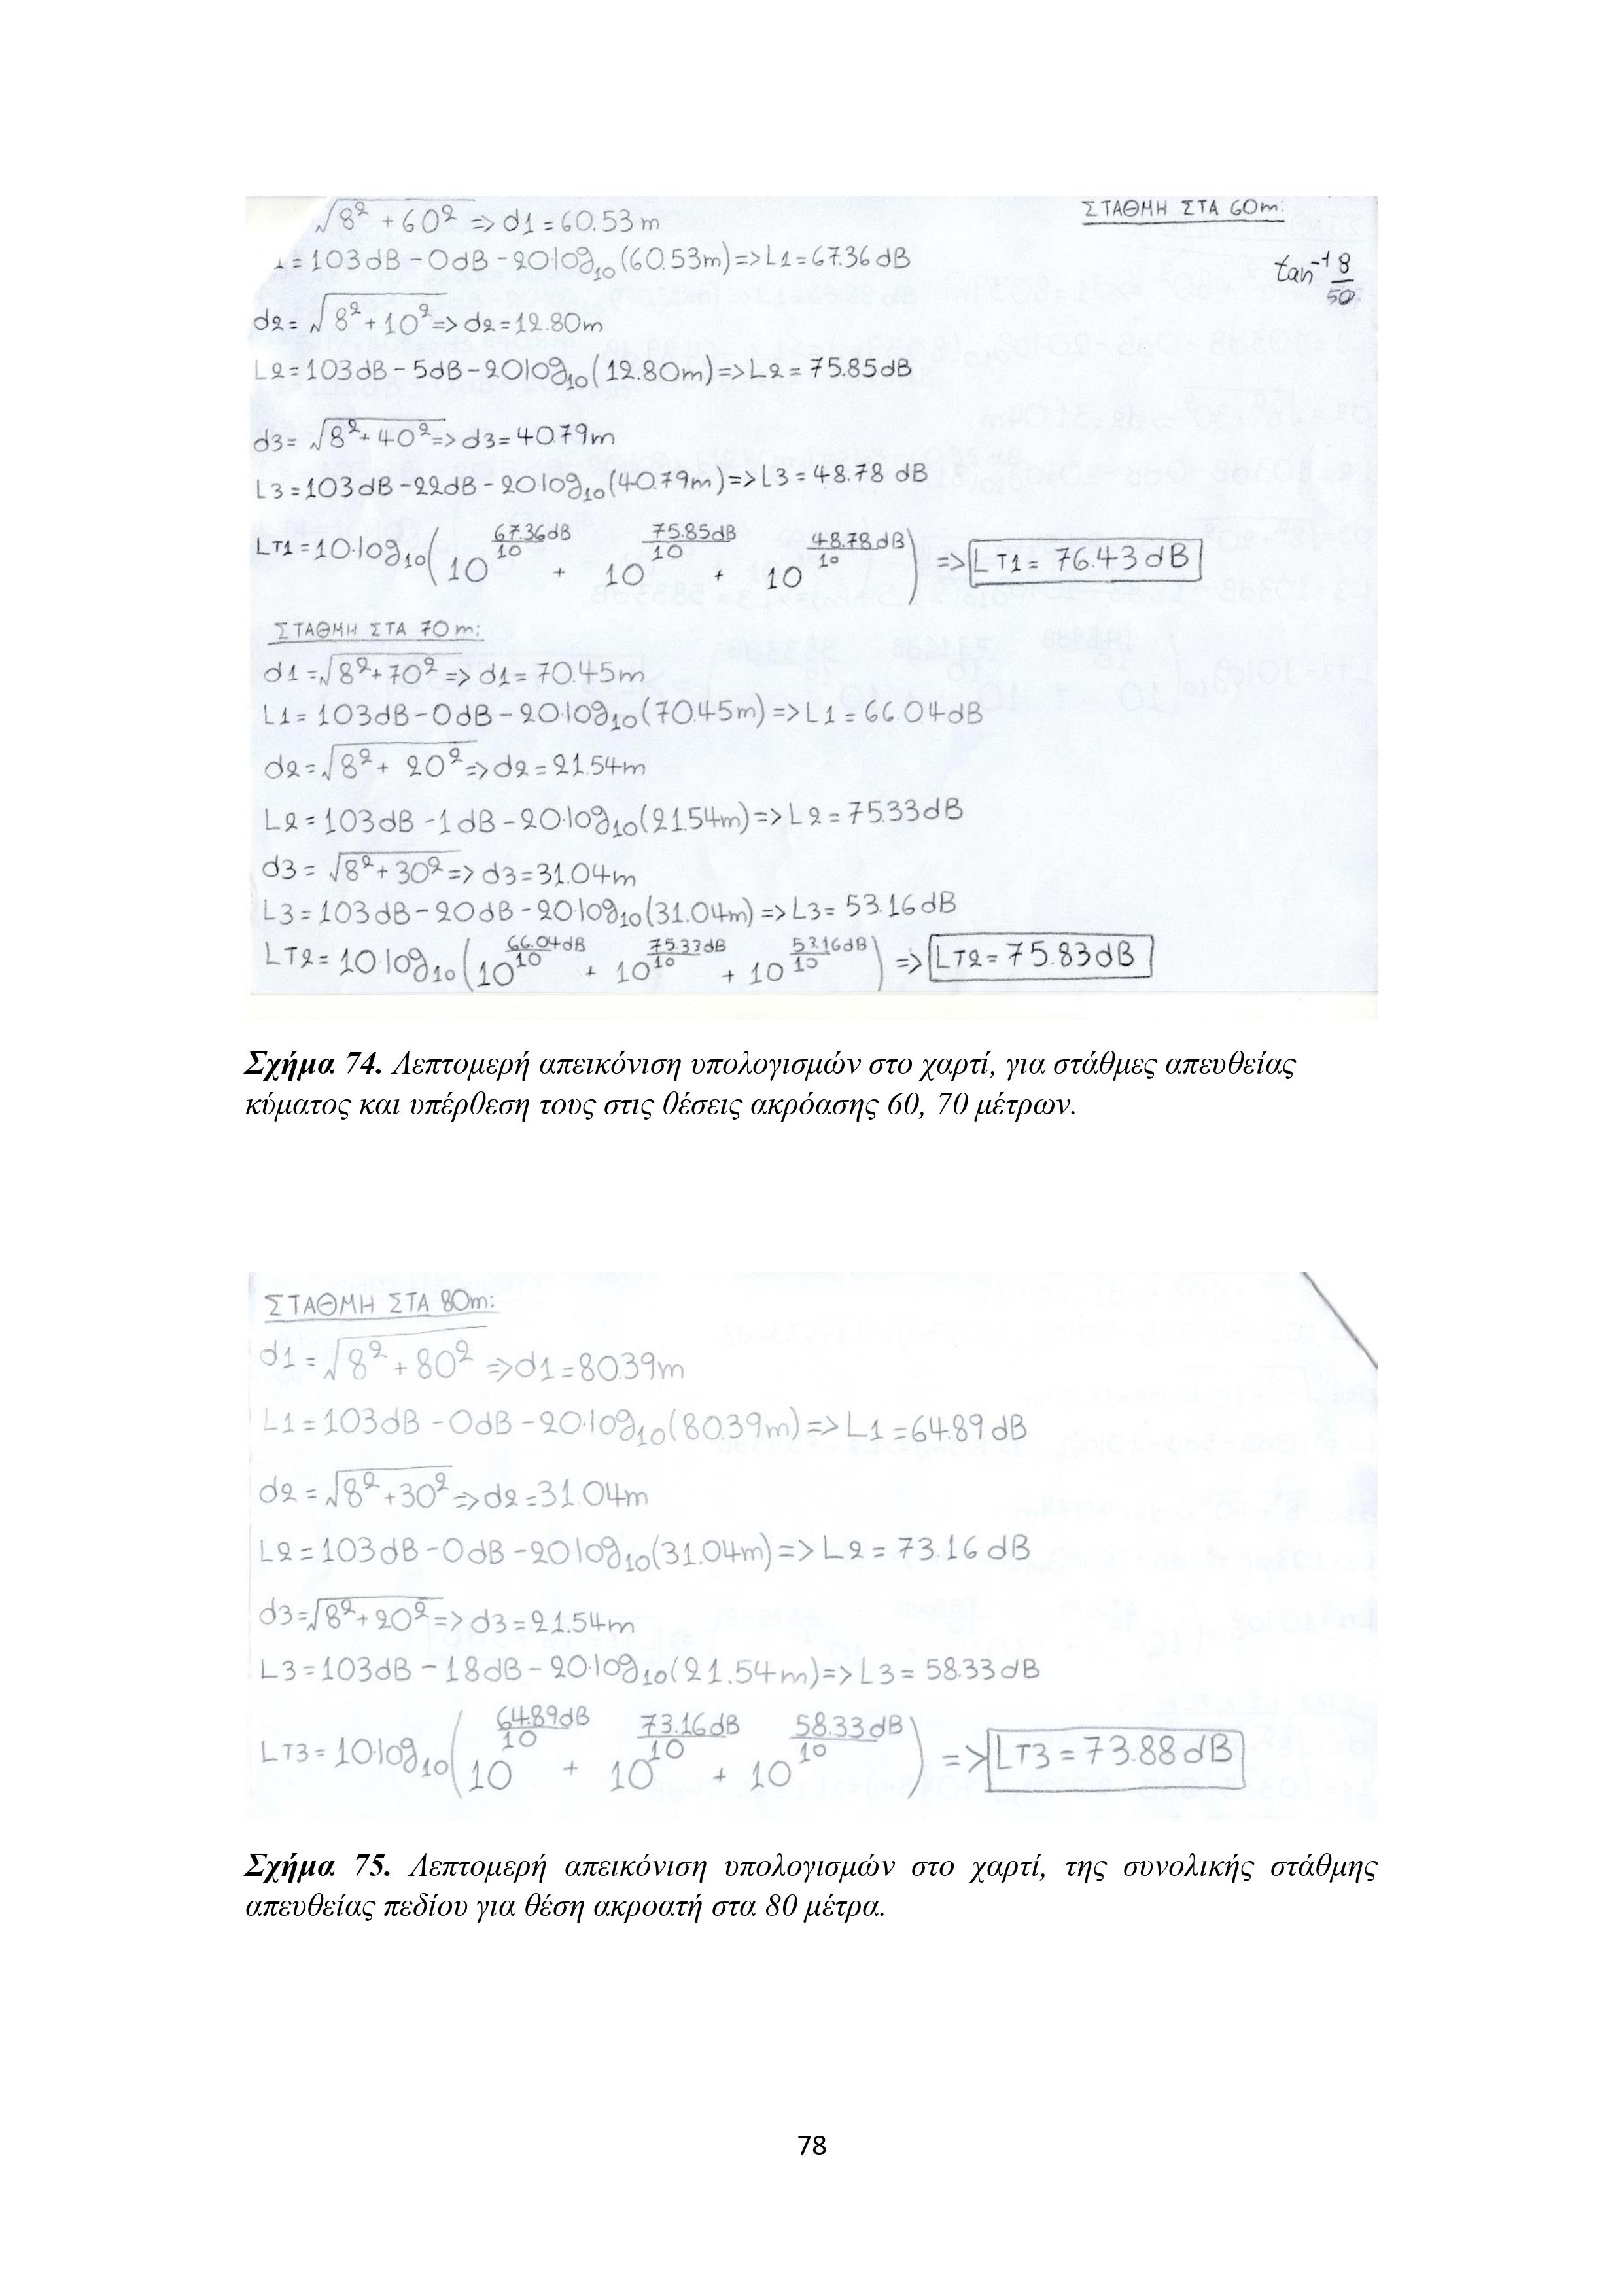 ΣΤΑΘΜΗ ΣΤΑ 60m:
√8² + 60² => d1 = 60.53 m
= 103dB - 0dB - 20log₁₀(60.53m) => L1 = 67.36dB
tan⁻¹ 8/50
d2 = √8² + 10² => d2 = 12.80m
L2 = 103dB - 5dB - 20log₁₀(12.80m) => L2 = 75.85dB
d3 = √8² + 40² => d3 = 40.79m
L3 = 103dB - 22dB - 20log₁₀(40.79m) => L3 = 48.78 dB
LT1 = 10·log₁₀(10^(67.36dB/10) + 10^(75.85dB/10) + 10^(48.78dB/10)) => LT1 = 76.43dB
ΣΤΑΘΜΗ ΣΤΑ 70m:
d1 = √8² + 70² => d1 = 70.45m
L1 = 103dB - 0dB - 20·log₁₀(70.45m) => L1 = 66.04dB
d2 = √8² + 20² => d2 = 21.54m
L2 = 103dB - 1dB - 20·log₁₀(21.54m) => L2 = 75.33dB
d3 = √8² + 30² => d3 = 31.04m
L3 = 103dB - 20dB - 20·log₁₀(31.04m) => L3 = 53.16dB
LT2 = 10log₁₀(10^(66.04dB/10) + 10^(75.33dB/10) + 10^(53.16dB/10)) => LT2 = 75.83dB
Σχήμα 74. Λεπτομερή απεικόνιση υπολογισμών στο χαρτί, για στάθμες απευθείας
κύματος και υπέρθεση τους στις θέσεις ακρόασης 60, 70 μέτρων.
ΣΤΑΘΜΗ ΣΤΑ 80m:
d1 = √8² + 80² => d1 = 80.39m
L1 = 103dB - 0dB - 20·log₁₀(80.39m) => L1 = 64.89dB
d2 = √8² + 30² => d2 = 31.04m
L2 = 103dB - 0dB - 20log₁₀(31.04m) => L2 = 73.16 dB
d3 = √8² + 20² => d3 = 21.54m
L3 = 103dB - 18dB - 20·log₁₀(21.54m) => L3 = 58.33dB
LT3 = 10·log₁₀(10^(64.89dB/10) + 10^(73.16dB/10) + 10^(58.33dB/10)) => LT3 = 73.88dB
Σχήμα 75. Λεπτομερή απεικόνιση υπολογισμών στο χαρτί, της συνολικής στάθμης
απευθείας πεδίου για θέση ακροατή στα 80 μέτρα.
78